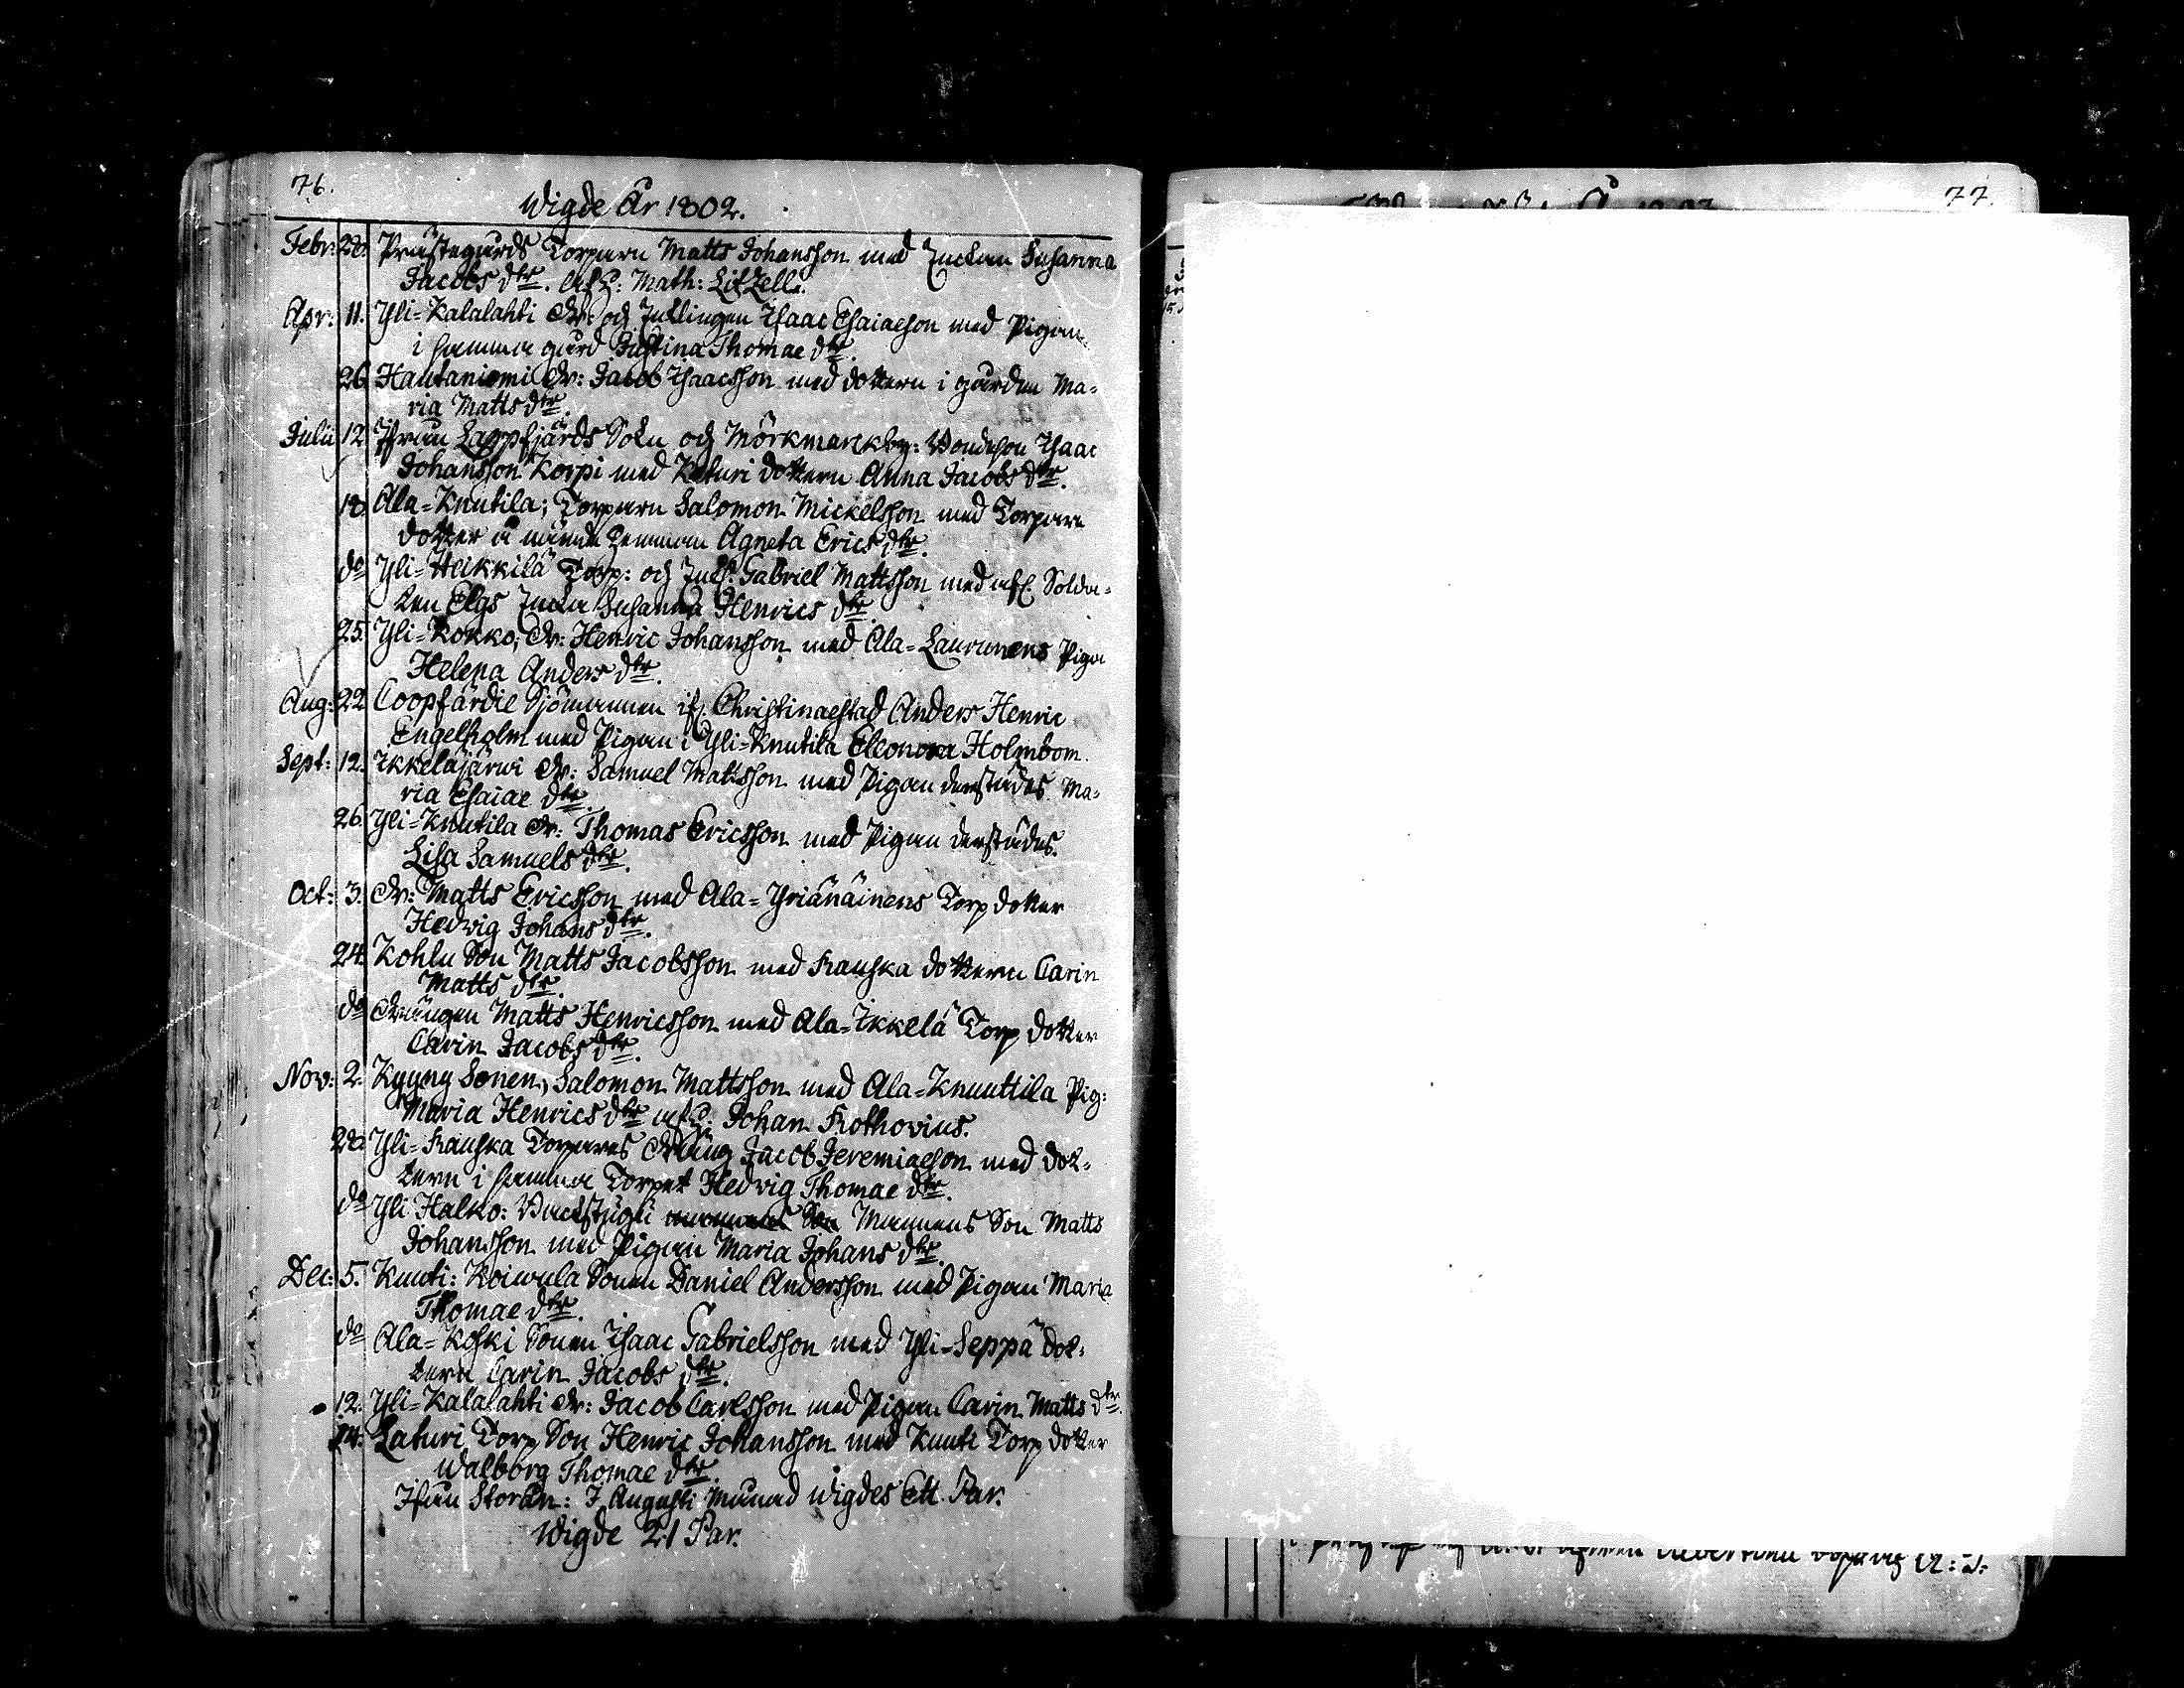 76.
Wigde År 1802.
Febr: 28. Prästegårds Torparn Matts Johansson med Enckan Susanna
Jacobs dtr. af : Math: Litzell.
Apr: 11. Yli-Kalalahti dr: och Inhlingen Isaac Esaiaeson med Pigan
i samma gård Justina Thomae dtr.
26 Hautaniemi dr: Jacob Isaacsson med dottern i gården Ma-
ria Matts dtr.
Julii 12. Ifrån Lappfjärds Sokn och Mörkmarckby: Bondeson Isaac
Johansson Korpi med Katuri dottern Anna Jacobs dtr.
18 Ala-Knutila; Torparn Salomon Mickelsson med Torpare
dotter å nämde hemman Agneta Erics dtr.
do Yli-Heikkilä Torp: och Inh: Gabriel Mattsson med afl. Solda-
ten Elgs Encka Susanna Henrics dtr.
25. Yli-Kokko; dr: Henric Johansson med Ala-Laurunens Piga
Helena Anders dtr.
Aug: 22 Coopfärdie Sjömannen if. Christinaestad Anders Henric
Engelholm med Pigan i Yli-Knutila Eleonora Holmbom.
Sept: 12. Ikkeläjärwi dr: Samuel Mattsson med Pigan derstädes Ma-
ria Esaiae dtr.
26. Yli-Knutila dr: Thomas Ericsson med Pigan derstädes.
Lisa Samuels dtr.
Oct: 3. dr: Matts Ericsson med Ala-Yrjänäinens Torp dotter
Hedwig Johans dtr.
24. Kohlu Son Matts Jacobsson med Rauska dottern Carin
Matts dtr.
do drängen Matts Henricsson med Ala-Ikkelä Torp dotter
Carin Jacobs dtr.
Nov: 2. Kyyny Sonen, Salomon Mattsson med Ala-Knuuttila Pig:
Maria Henrics dtr af : Johan Rothovius.
28. Yli-Rauska Torpares dräng Jacob Jeremiaeson med dot-
tern i samma Torpet Hedvig Thomae dtr.
do Yli Halko: Backstugu Mannens Son Matts
Johansson med Pigan Maria Johans dtr.
Dec: 5. Kuuti: Koiwula Sonen Daniel Andersson med Pigan Maria
Thomae dtr.
do Ala-Koski Sonen Isaac Gabrielsson med Yli-Seppä dot-
tern Carin Jacobs dtr.
12. Yli-Kalalahti dr: Jacob Carlsson med Pigan Carin Matts dtr.
14. Laturi Torp Son Henric Johansson med Kuuti Torp dotter
Walborg Thomae dtr.
Ifrån Storån: I Augusti Månad wigdes Ett Par.
Wigde 21 Par.
77.